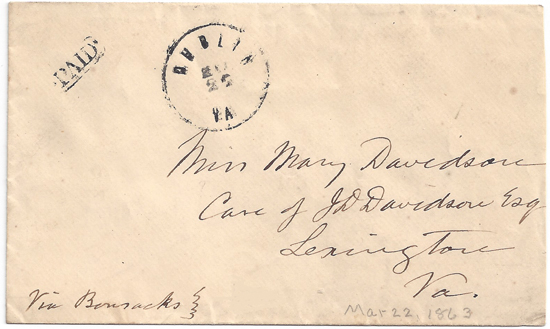 PAID
DUBLIN
22
VA
Miss Mary Davidson
Care of J D Davidson Esq
Lexington
Va.
Via Bonsacks
Mar 22, 1863